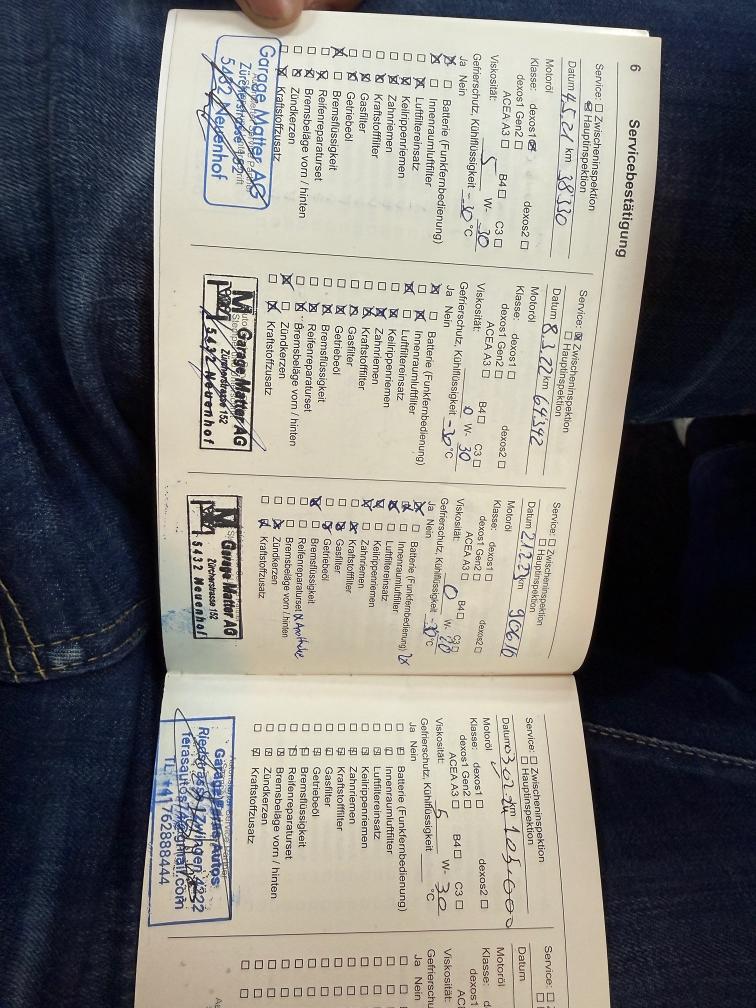 6
Servicebestätigung
Service: ☐ Zwischeninspektion
☒ Hauptinspektion
Datum 4.5.21 km 38'330
Motoröl
Klasse: dexos1 ☒ dexos2 ☐
dexos1 Gen2 ☐
ACEA A3 ☐ B4 ☐ C3 ☐
Viskosität: 5 W- 30
Gefrierschutz, Kühlflüssigkeit -30 °C
Ja Nein
Batterie (Funkfernbedienung)
Innenraumluftfilter
Luftfiltereinsatz
Keilrippenriemen
Zahnriemen
Kraftstofffilter
Gasfilter
Getriebeöl
Bremsflüssigkeit
Reifenreparaturset
Bremsbeläge vorn / hinten
Zündkerzen
Kraftstoffzusatz
Garage Matter AG
Zürcherstrasse 152
5432 Neuenhof
Service: ☒ Zwischeninspektion
☐ Hauptinspektion
Datum 8.3.22 km 64342
Motoröl
Klasse: dexos1 ☐ dexos2 ☐
dexos1 Gen2 ☐
ACEA A3 ☐ B4 ☐ C3 ☐
Viskosität: 0 W- 30
Gefrierschutz, Kühlflüssigkeit -30 °C
Ja Nein
Batterie (Funkfernbedienung)
Innenraumluftfilter
Luftfiltereinsatz
Keilrippenriemen
Zahnriemen
Kraftstofffilter
Gasfilter
Getriebeöl
Bremsflüssigkeit
Reifenreparaturset
Bremsbeläge vorn / hinten
Zündkerzen
Kraftstoffzusatz
M Garage Matter AG
Zürcherstrasse 152
5432 Neuenhof
Service: ☐ Zwischeninspektion
☐ Hauptinspektion
Datum 21.2.23 km 90610
Motoröl
Klasse: dexos1 ☐ dexos2 ☐
dexos1 Gen2 ☐
ACEA A3 ☐ B4 ☐ C3 ☐
Viskosität: 0 W- 20
Gefrierschutz, Kühlflüssigkeit -30 °C
Ja Nein
Batterie (Funkfernbedienung) 2x
Innenraumluftfilter
Luftfiltereinsatz
Keilrippenriemen
Zahnriemen
Kraftstofffilter
Gasfilter
Getriebeöl
Bremsflüssigkeit
Reifenreparaturset
Bremsbeläge vorn / hinten
Zündkerzen
Kraftstoffzusatz
M Garage Matter AG
Zürcherstrasse 152
5432 Neuenhof
Service: ☐ Zwischeninspektion
☐ Hauptinspektion
Datum 03.02.24 km 105.600
Motoröl
Klasse: dexos1 ☐ dexos2 ☐
dexos1 Gen2 ☐
ACEA A3 ☐ B4 ☐ C3 ☐
Viskosität: 5 W- 30
Gefrierschutz, Kühlflüssigkeit °C
Ja Nein
Batterie (Funkfernbedienung)
Innenraumluftfilter
Luftfiltereinsatz
Keilrippenriemen
Zahnriemen
Kraftstofffilter
Gasfilter
Getriebeöl
Bremsflüssigkeit
Reifenreparaturset
Bremsbeläge vorn / hinten
Zündkerzen
Kraftstoffzusatz
Garage Teras Autos
Zwingen 4222
TL:+41762888444
Service:
Datum
Motoröl
Klasse:
Viskosität:
Ja Nein